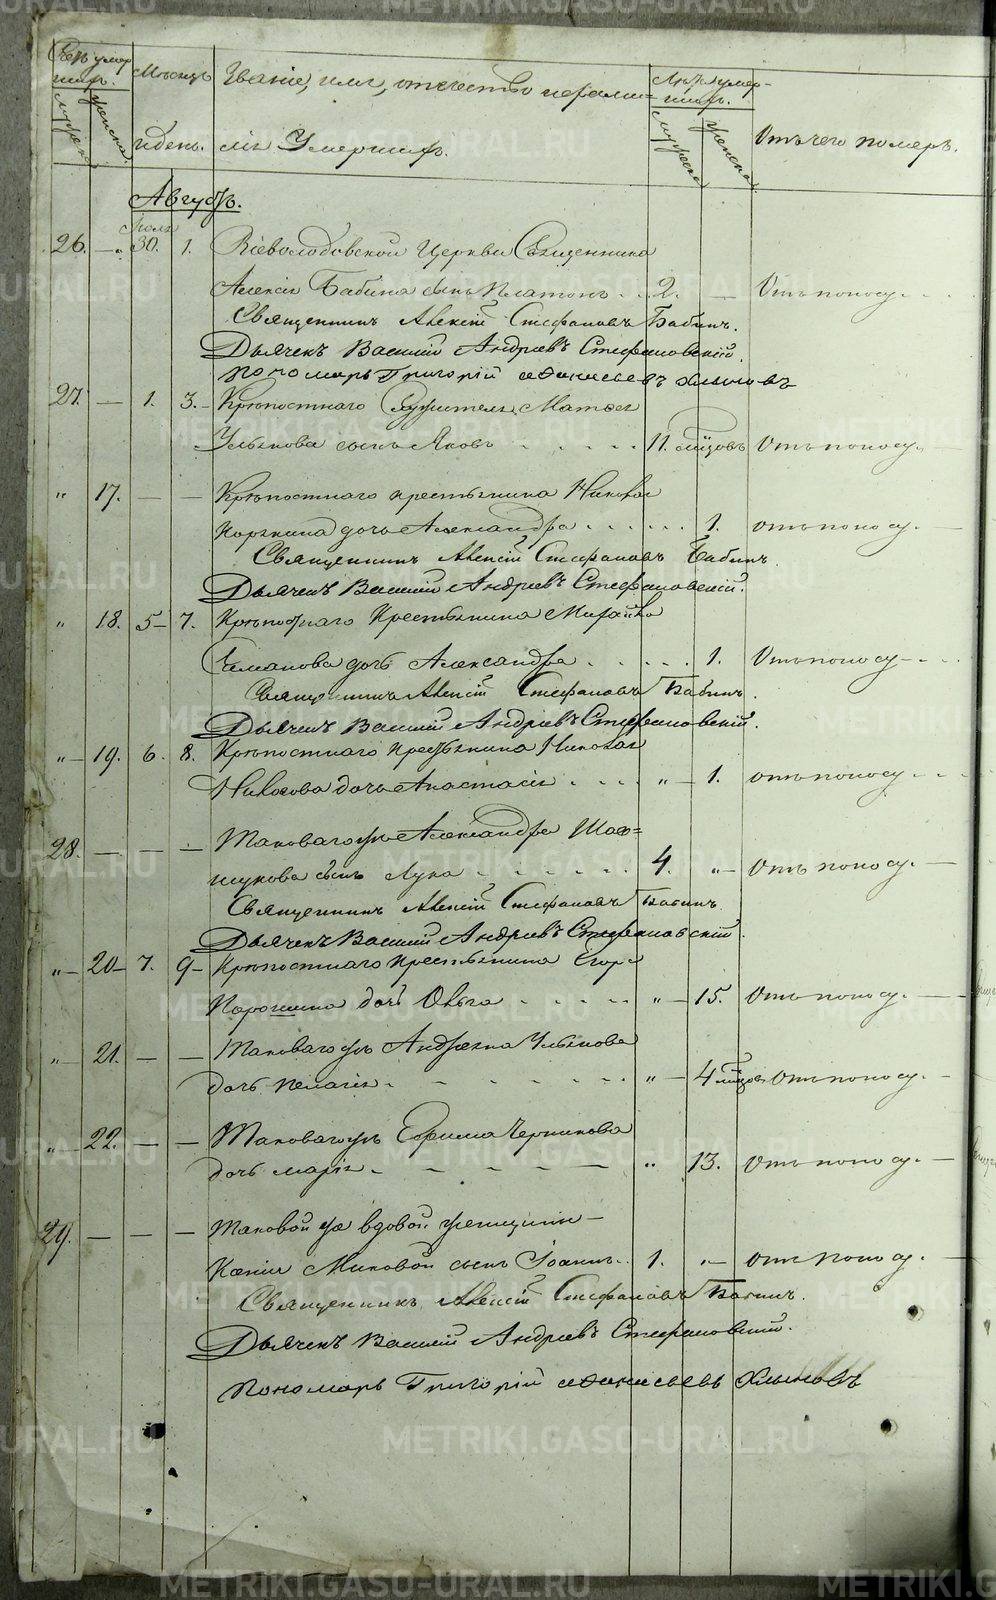 Счетъ умер Мѣсяцъ Званіе, имя, отчество и фами= Лѣта умер-
шихъ. шихъ.
мужеска женска и день. лія Умершихъ. мужеска женска Отъ чего померъ.
Августъ.
Іюля
26. — „ 30. 1. Всеволодовской Церкви Священника
Алексія Бабина сынъ Платонъ . . 2. — Отъ поносу.
Священникъ Алексій Стефановъ Бабинъ.
Дьячекъ Василій Андріевъ Стефановскій.
Пономарь Григорій Афанасьевъ Хлыновъ
27. — 1. 3. Крѣпостнаго Служителя Матвѣя
Улыбкова сынъ Яковъ . . . . . 11. мѣсяцовъ Отъ поносу. —
„ 17. — — Крѣпостнаго крестьянина Никиты
дочь Александра . . . . . 1. отъ поносу. —
Священникъ Алексій Стефановъ Бабинъ.
Дьячекъ Василій Андріевъ Стефановскій.
„ 18. 5 — 7. Крѣпостнаго Крестьянина Михайла
дочь Александра . . . . . 1. Отъ поносу —
Священникъ Алексій Стефановъ Бабинъ.
Дьячекъ Василій Андріевъ Стефановскій.
„ — 19. 6. 8. Крѣпостнаго крестьянина Николая
дочь Анастасія . . . . „ — 1. отъ поносу.
28. — — — Таковагожъ Александра
сынъ Лука . . . . . . . 4. „ — Отъ поносу. —
Священникъ Алексій Стефановъ Бабинъ
Дьячекъ Василій Андріевъ Стефановскій.
„ — 20 — 7. 9 — Крѣпостнаго крестьянина Егора
Порошина дочь Ольга . . . . „ — 15. Отъ поносу. —
„ — 21. — — Таковагожъ Андреяна Улыбкова
дочь Пелагія . — — — — „ — 4 мѣсяцовъ Отъ поносу. —
„ — 22. — — Таковагожъ Ефима Черникова
дочь Марія . — — — — „ 13. Отъ поносу. —
29. — — — Таковой же вдовой женщины —
Ксеніи сынъ Іоаннъ . . 1. „ — Отъ поносу.
Священникъ Алексій Стефановъ Бабинъ.
Дьячекъ Василій Андріевъ Стефановскій.
Пономарь Григорій Афанасьевъ Хлыновъ
METRIKI.GASO-URAL.RU